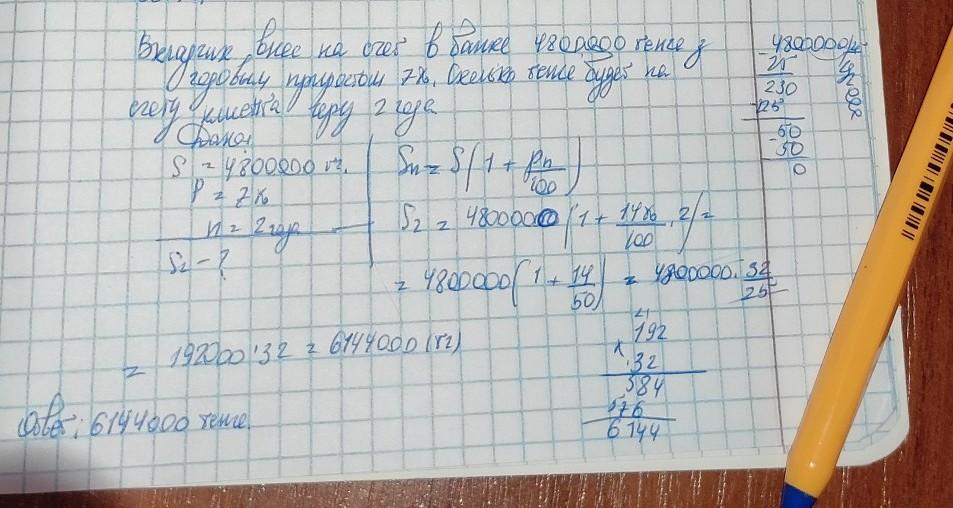 Вкладчик внес на счет в банке 4800000 тенге з
годовым приростом 7%. Сколько тенге будет на
счету клиента через 2 года
Дано:
S = 4800000 тг.
P = 7%
n = 2 года
S₂ - ?
Sn = S(1 + pn/100)
S₂ = 4800000(1 + 14%/100 · 2) =
= 4800000(1 + 14/50) = 4800000 · 32/25
= 192000 · 32 = 6144000 (тг)
Ответ: 6144000 тенге.
4800000
25
230
225
50
50
0
192
× 32
384
576
6144